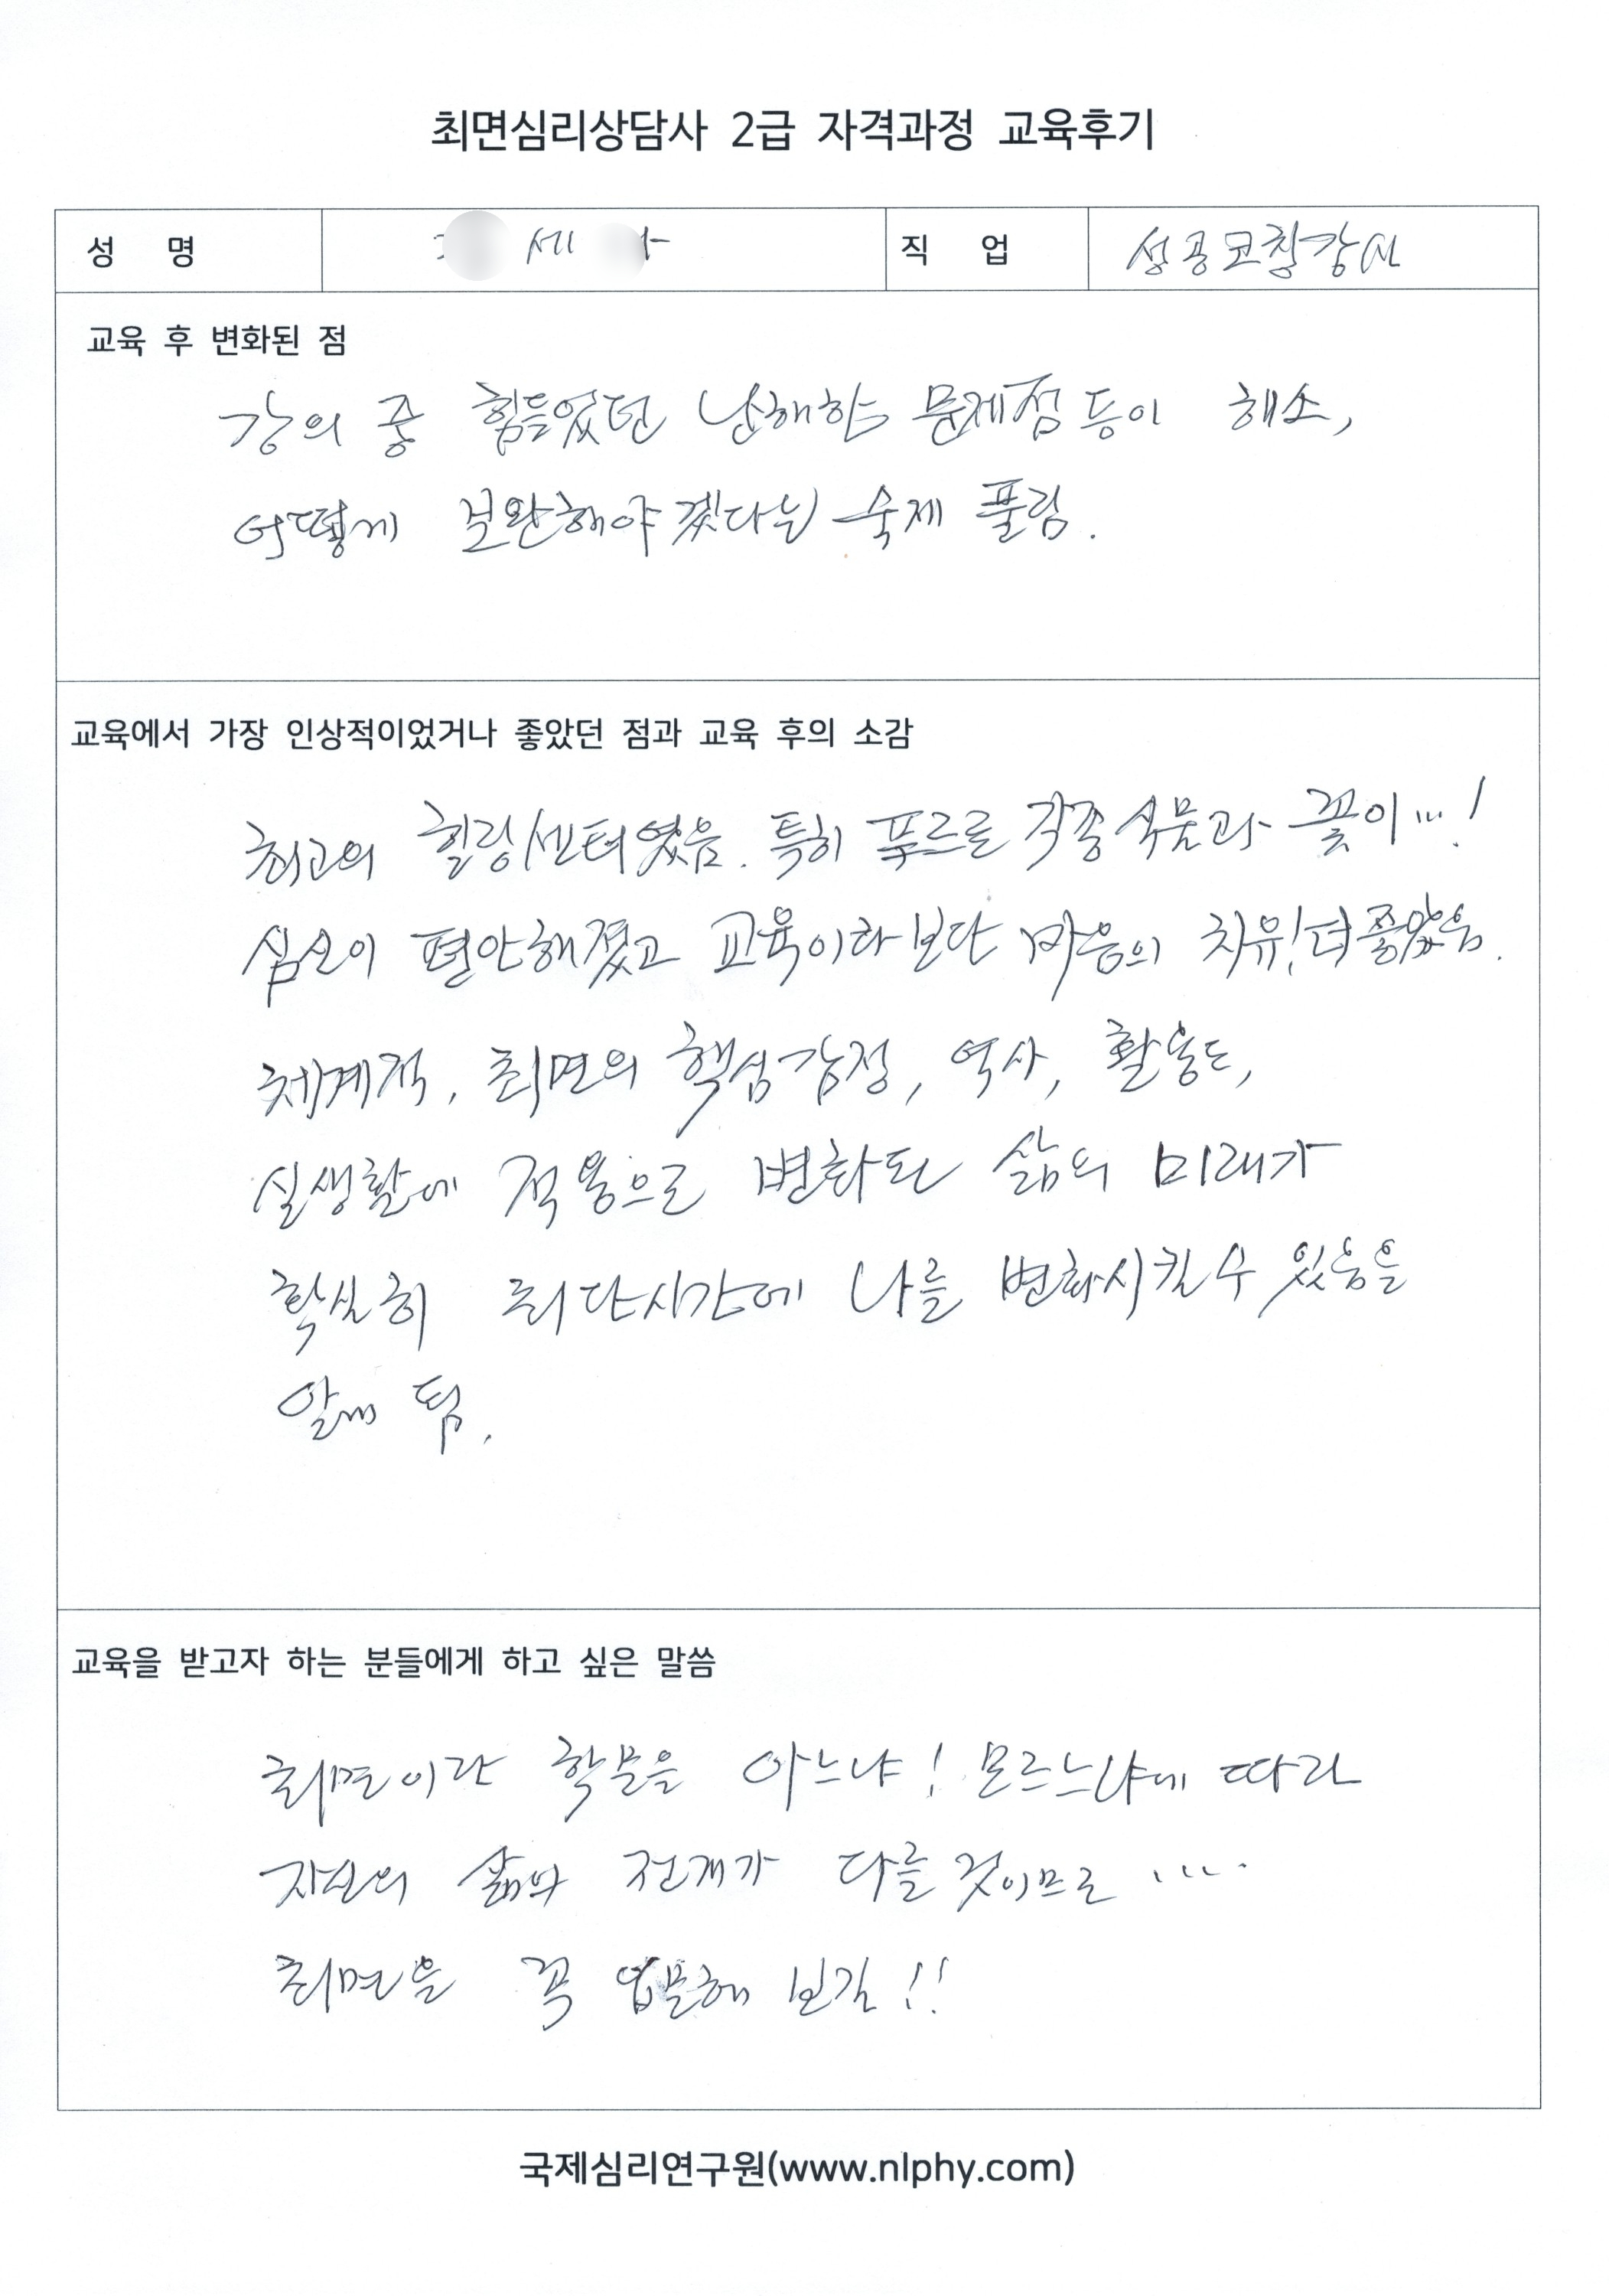 최면심리상담사 2급 자격과정 교육후기
성 명 세 직 업 성공코칭강사
교육 후 변화된 점
강의 중 힘들었던 난해한 문제점 등이 해소,
어떻게 보완해야 겠다는 숙제 풀림.
교육에서 가장 인상적이었거나 좋았던 점과 교육 후의 소감
최고의 힐링센터였음. 특히 푸르른 각종 식물과 꽃이...!
심신이 편안해졌고 교육이라보단 마음의 치유! 더 좋았음.
체계적, 최면의 핵심감정, 역사, 활용도,
실생활에 적용으로 변화된 삶의 미래가
확실히 최단시간에 나를 변화시킬 수 있음을
알게 됨.
교육을 받고자 하는 분들에게 하고 싶은 말씀
최면이란 학문을 아느냐! 모르느냐에 따라
자신의 삶의 전개가 다를 것이므로 ....
최면을 꼭 입문해 보길!!
국제심리연구원(www.nlphy.com)